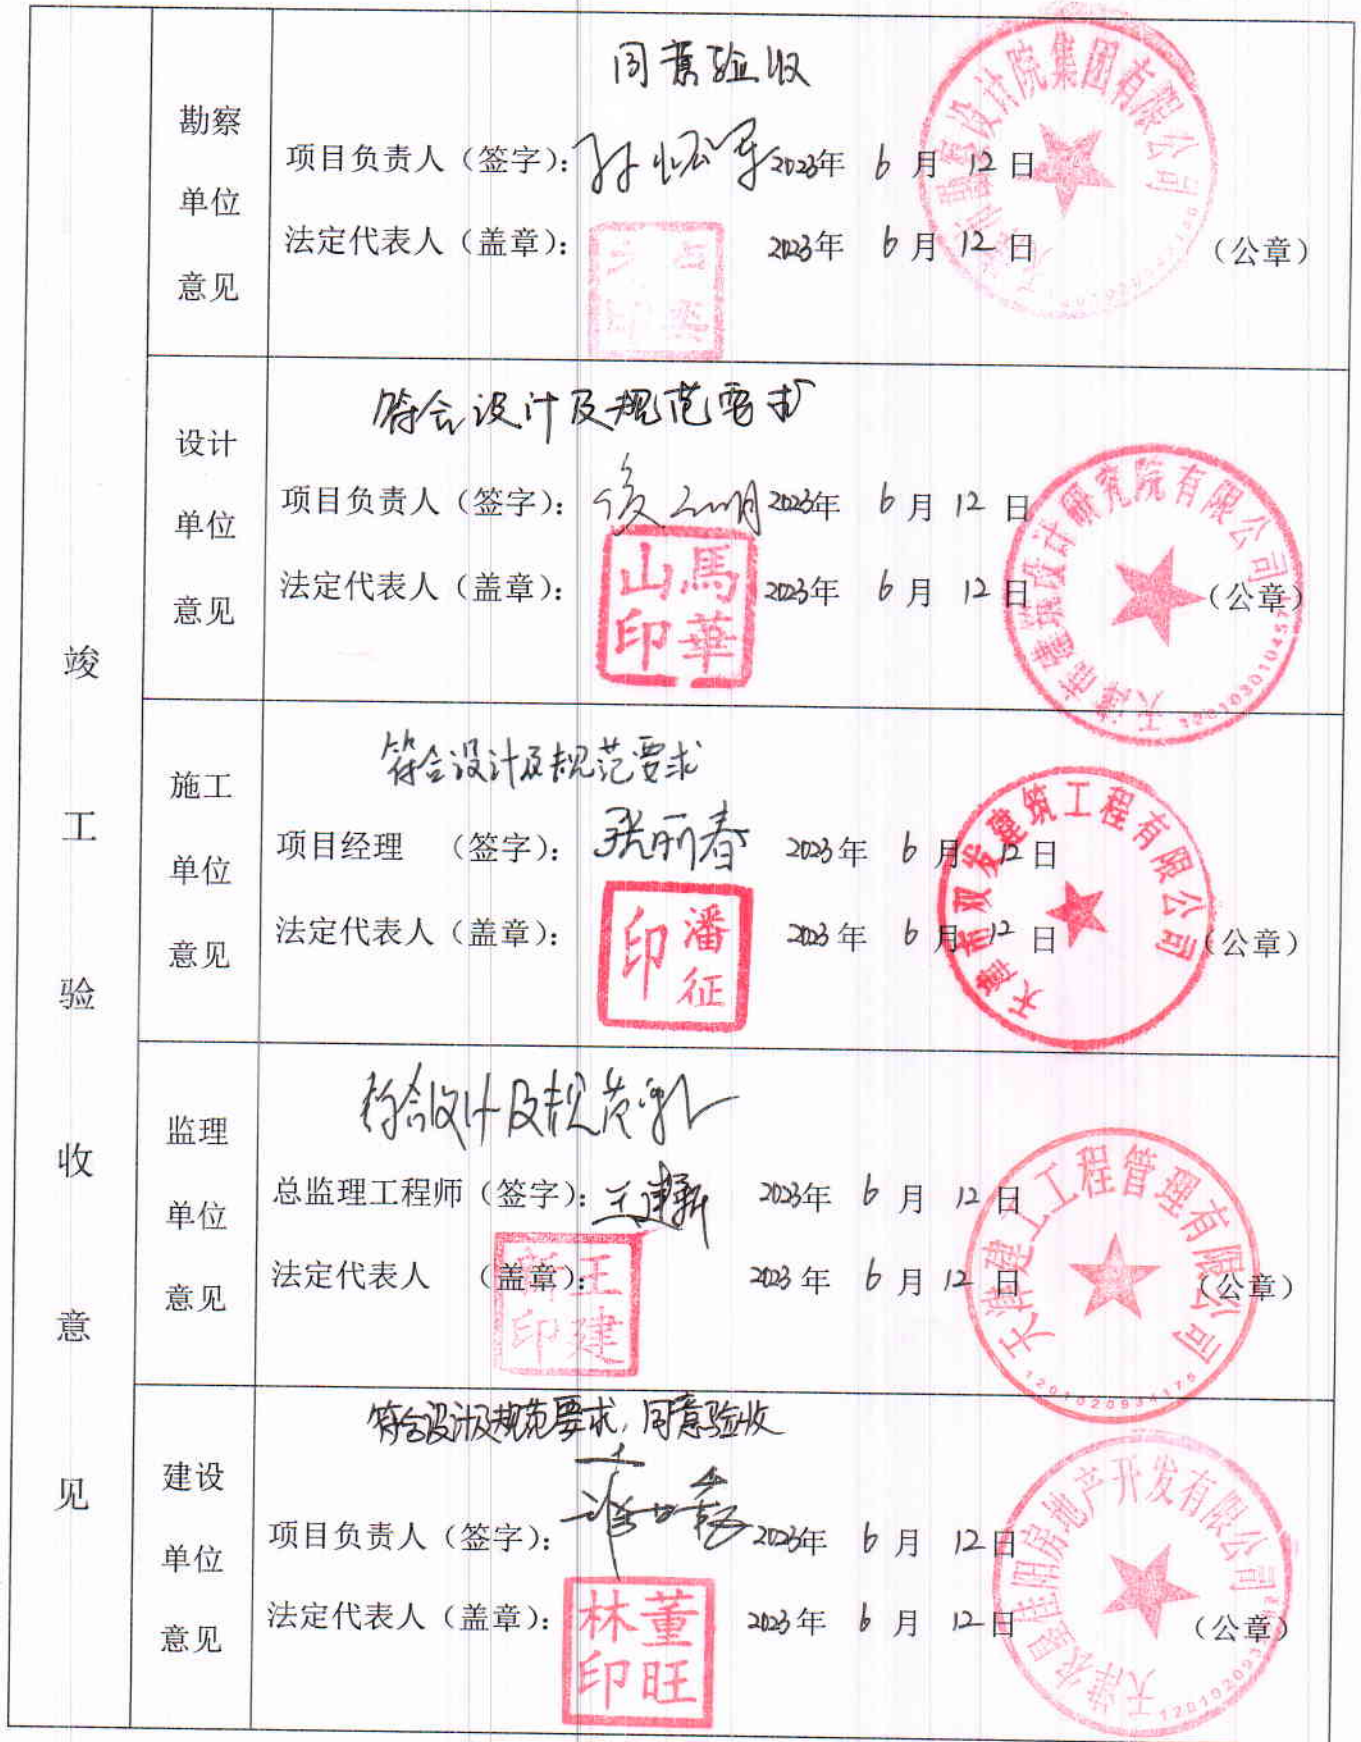 竣工验收意见
勘察单位意见
同意验收
项目负责人（签字）： 2023年 6 月 12 日
法定代表人（盖章）： 2023年 6 月 12 日 （公章）
设计院集团有限公司
设计单位意见
符合设计及规范要求
项目负责人（签字）： 2023年 6 月 12 日
马華山印
法定代表人（盖章）： 2023年 6 月 12 日 （公章）
天津市建筑设计研究院有限公司
施工单位意见
符合设计及规范要求
项目经理 （签字）： 张丽春 2023年 6 月 12 日
法定代表人（盖章）： 潘征印 2023年 6 月 12 日 （公章）
天津市双发建筑工程有限公司
监理单位意见
符合设计及规范要求
总监理工程师（签字）： 王建新 2023年 6 月 12 日
法定代表人 （盖章）： 王建新印 2023年 6 月 12 日 （公章）
天津建工工程管理有限公司
1201020934175
建设单位意见
符合设计及规范要求，同意验收
项目负责人（签字）： 2023年 6 月 12日
法定代表人（盖章）： 董旺林印 2023年 6 月 12日 （公章）
天津农垦佳阳房地产开发有限公司